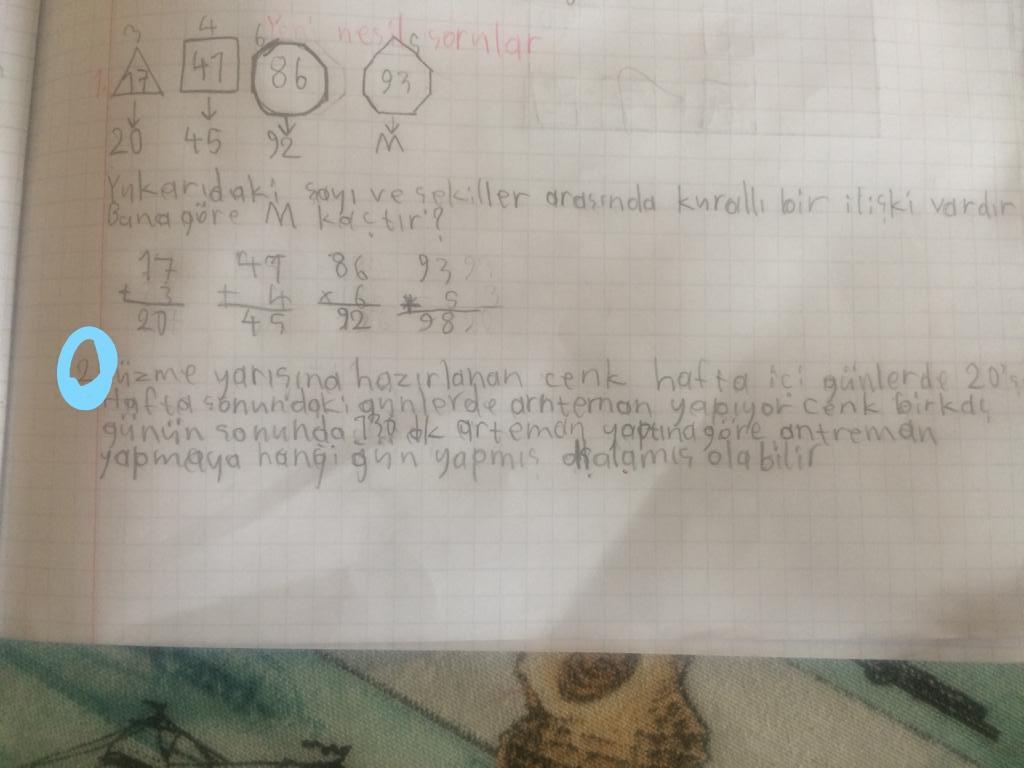 Yeni nesil sorular
3 4 6 5
1. 17 41 86 93
20 45 92 M
Yukarıdaki sayı ve şekiller arasında kurallı bir ilişki vardır
Buna göre M kaçtır?
17 41 86 93
+ 3 + 4 × 6 5
20 45 92 98
2 yüzme yarışına hazırlanan cenk hafta içi günlerde 20's
Hafta sonundaki günlerde arnteman yapıyor cenk birkaç
günün sonunda 130 dk arteman yaptına göre antreman
yapmaya hangi gün yapmış olabilir